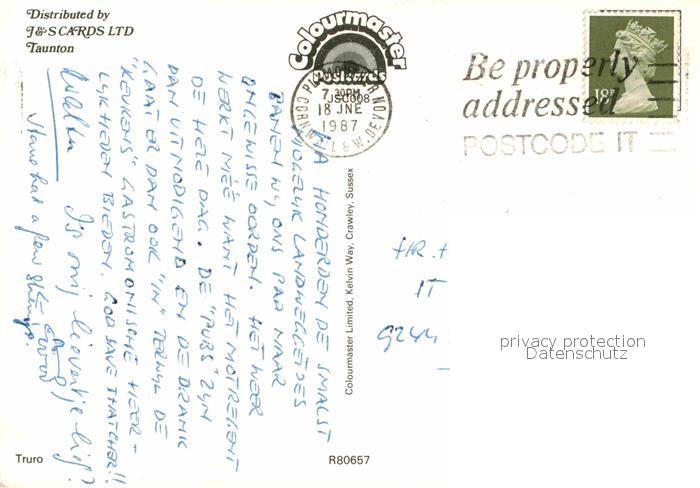 Distributed by
J&S CARDS LTD
Taunton
Colourmaster
Postcards
JSC008
7.30PM
18 JNE
1987
CORNWALL & W. DEVON
Be properly
addressed
POSTCODE IT
18P
HONDERDEN DE SMALST
MOGELIJK LANDWEGGETJES
BANEN WIJ ONS PAD NAAR
ONGENISSE OORDEN. HET WEER
WERKT MEÉ WANT HET MOTREGENT
DE HELE DAG. DE "PUBS" ZIJN
DAN UITNODIGEND EN DE DRANK
GAAT ER DAN OOK "IN" TERWIJL DE
"KEUKENS" GASTRONOMISCHE HEER-
LIJKHEDEN BIEDEN. GOD SAVE THATCHER!!
Is mij lievertje lief?
Have had a few
HR.
IT
9244
privacy protection
Datenschutz
Colourmaster Limited, Kelvin Way, Crawley, Sussex
Truro
R80657